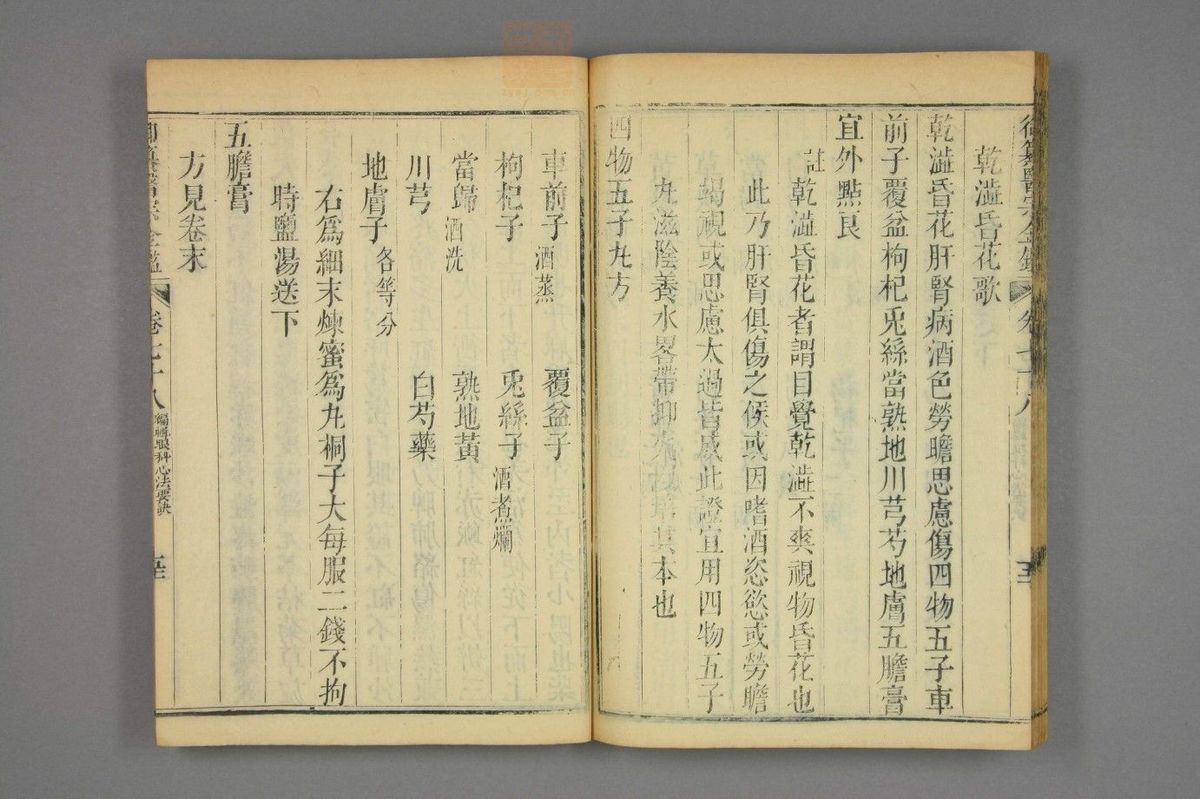 御纂醫宗金鑑
卷七十八
乾澁昏花歌
乾澁昏花肝腎病酒色勞瞻思慮傷四物五子車
前子覆盆枸杞兎絲當熟地川芎芍地膚五膽膏
宜外㸃良
註乾澁昏花者謂目覺乾澁不爽視物昏花也
此乃肝腎俱傷之候或因嗜酒恣慾或勞瞻
竭視或思慮太過皆成此證宜用四物五子
丸滋陰養水畧帶抑火以培其本也
四物五子丸方
車前子酒蒸 覆盆子
枸杞子 兎絲子酒煮爛
當歸酒洗 熟地黃
川芎 白芍藥
地膚子各等分
右爲細末煉蜜爲丸桐子大每服二錢不拘
時鹽湯送下
五膽膏
方見卷末
御纂醫宗金鑑
卷七十八
編輯眼科心法要訣